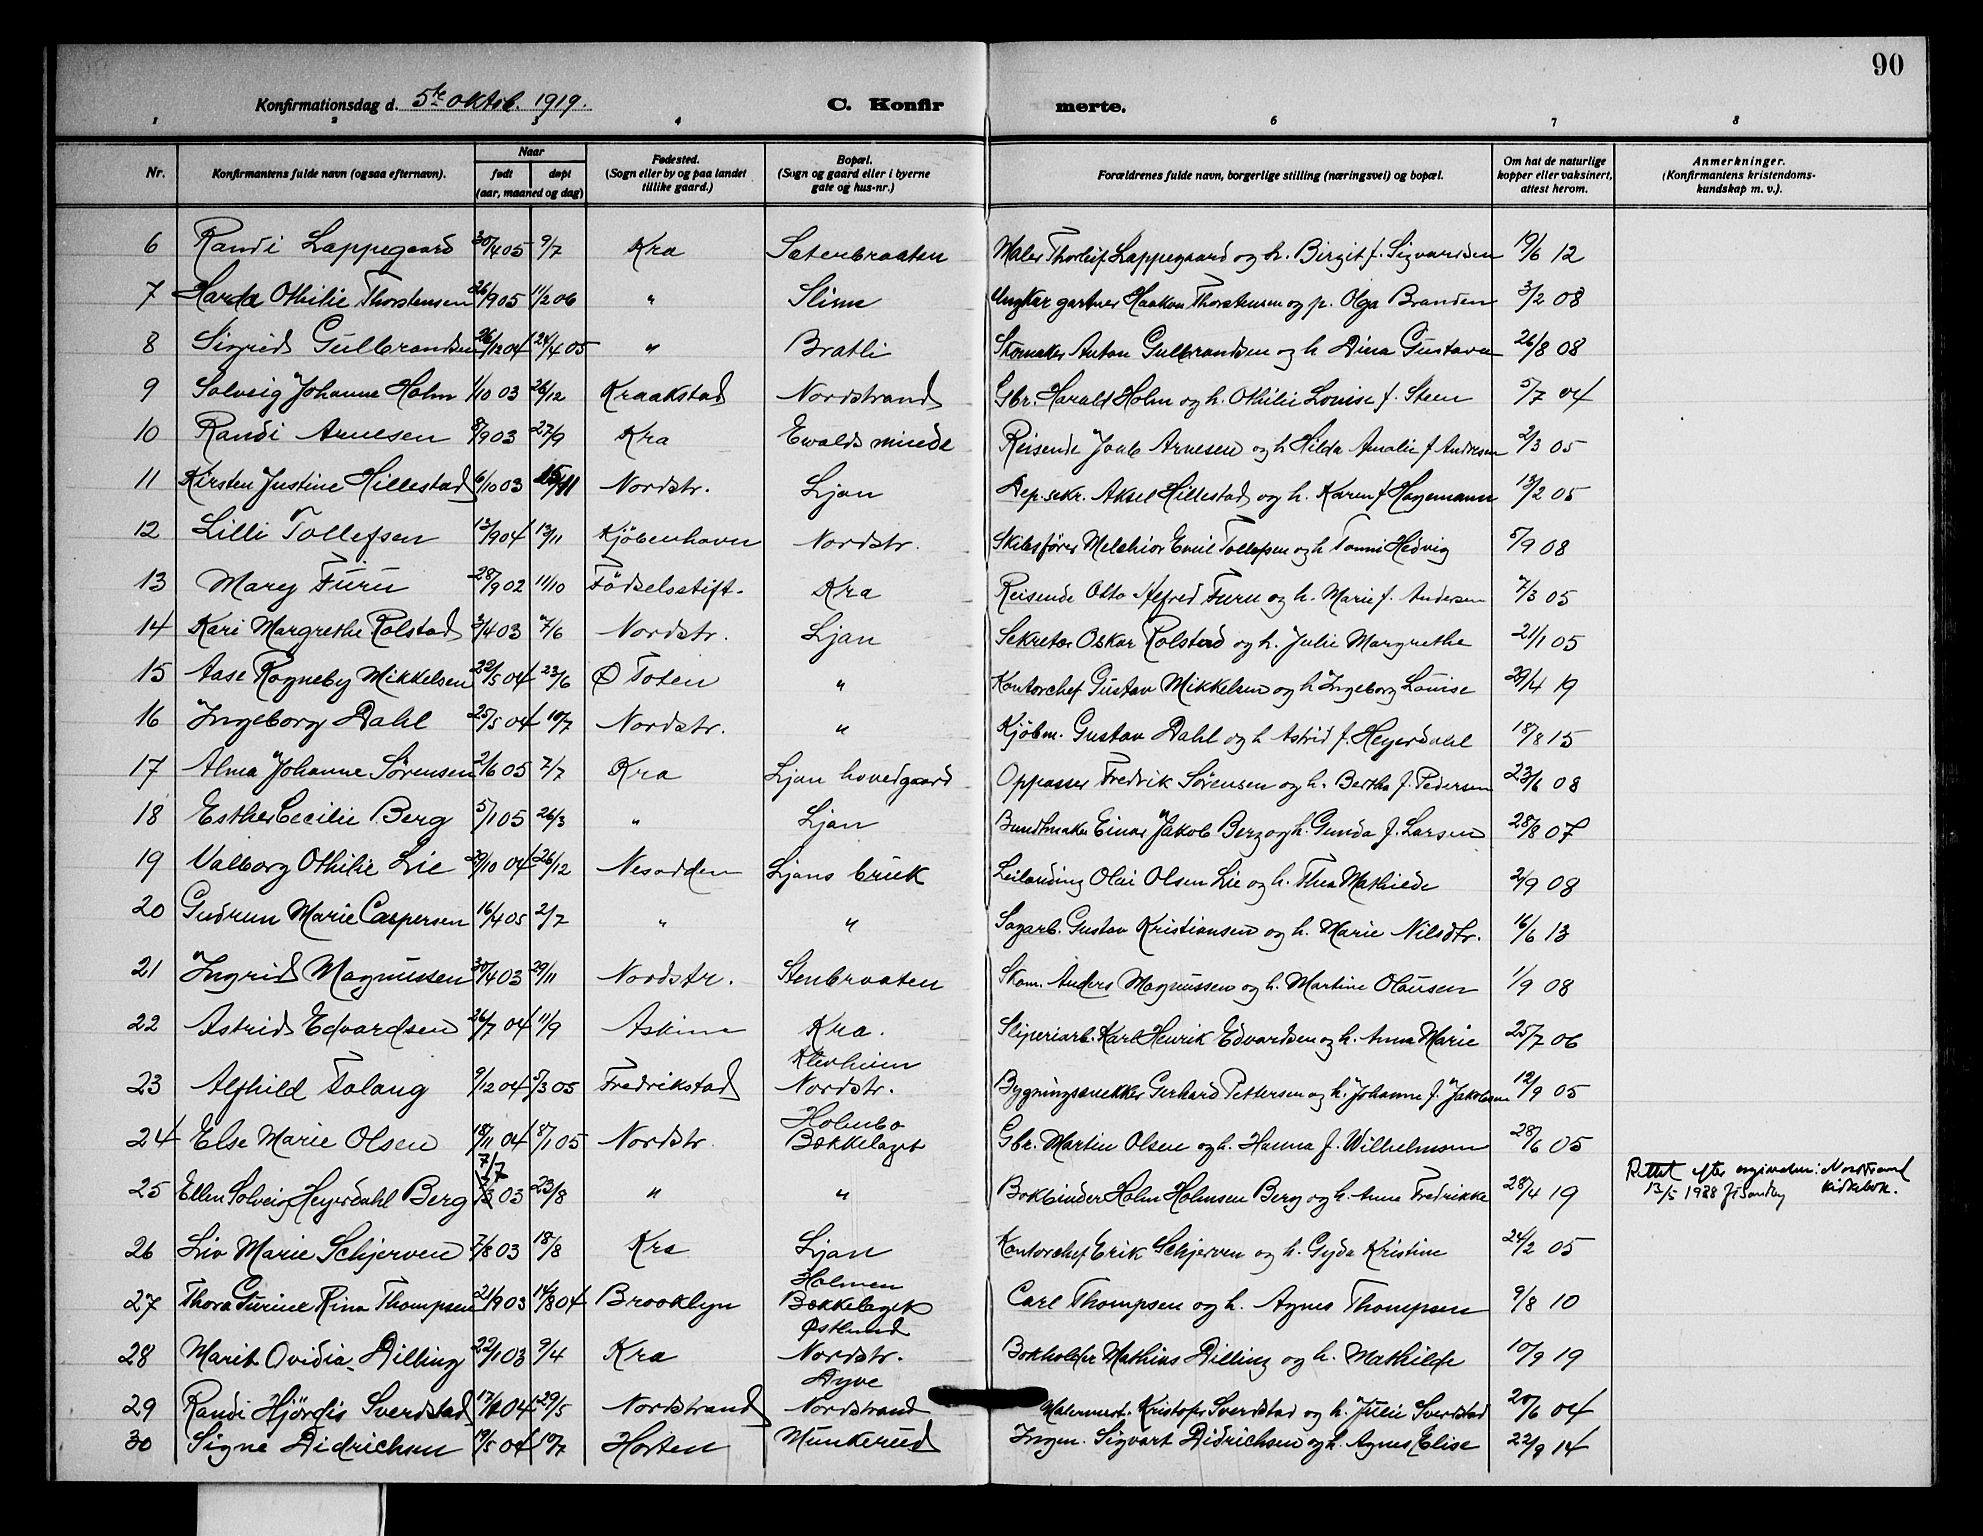 90
Konfirmationsdag d. 5te oktob. 1919. C. Konfir merte.
1 2 3 4 6 7 8
Nr. Konfirmantens fulde navn (ogsaa efternavn). Naar født døpt (aar, maaned og dag) Fødested. (Sogn eller by og paa landet tillike gaard.) Bopæl. (Sogn og gaard eller i byerne gate og hus-nr.) Forældrenes fulde navn, borgerlige stilling (næringsvei) og bopæl. Om hat de naturlige kopper eller vaksinert, attest herom. Anmerkninger. (Konfirmantens kristendomskundskap m. v.).
6 Randi Lappegaard 30/4 05 9/7 Kra Sæterbraaten Maler Thorleif Lappegaard og h. Birgit f. Sigvardsen 19/6 12
7 Othilie Thorstensen 26/9 05 11/2 06 " Slim Ungkar gartner Haakon Thorstensen og p. Olga Branden 3/2 08
8 Sigrid Gulbrandsen 26/12 04 24/4 05 " Bratli Skomaker Anton Gulbrandsen og h Dina Gustava 26/8 08
9 Solveig Johanne Holm 1/10 03 26/12 Kraakstad Nordstrand Gbr. Harald Holm og h. Othilie Louise f. Steen 5/7 04
10 Randi Arnesen 8/9 03 27/9 Kra Ewalds minde Reisende Arnesen og h Hilda Amalie f Andresen 2/3 05
11 Kirsten Justine Hillestad 6/10 03 15/11 Nordstr. Ljan Dep.sekr. Aksel Hillestad og h. Karen f Hagemann 13/2 05
12 Lilli Tollefsen 13/9 04 13/11 Kjöbenhavn Nordstr. Skibsfører Melchior Emil Tollefsen og h Tomni Hedvig 5/9 08
13 Mary Furu 28/9 02 11/10 Födselsstift. Kra Reisende Otto Alfred Furu og h. Marie f. Andersen 7/3 05
14 Kari Margrethe Rolstad 3/4 03 7/6 Nordstr. Ljan Sekretær Oskar Rolstad og h. Julie Margrethe 21/1 05
15 Aase Rogneby Mikkelsen 22/5 04 23/6 Ø Toten " Kontorchef Gustav Mikkelsen og h Ingeborg Louise 29/4 19
16 Ingeborg Dahl 25/5 04 10/7 Nordstr. " Kjöbm. Gustav Dahl og h Astrid f. Heyerdahl 18/8 15
17 Alma Johanne Sørensen 2/6 05 7/7 Kra Ljan hovedgaard Oppasser Fredrik Sørensen og h. Bertha f. Pedersen 23/6 08
18 Esther Cecilie Berg 5/1 05 26/3 " Ljan Buntmaker Einar Jakob Berg og h. Gunda f. Larsen 28/8 07
19 Valborg Othilie Lie 29/10 04 26/12 Nesodden Ljans bruk Leilending Olai Olsen Lie og h. Thea Mathilde 2/9 08
20 Gudrun Marie Caspersen 16/4 05 2/7 " " Sagarb. Gustav Kristiansen og h. Marie Nilsdtr. 16/6 13
21 Ingrid Magnussen 30/4 03 29/11 Nordstr. Stenbraaten Skom. Anders Magnussen og h. Martine Olausen 1/9 08
22 Astrid Edvardsen 26/7 04 11/9 Askim Kra. Sliperiarb. Karl Henrik Edvardsen og h. Anna Marie 25/7 06
23 Alfhild Solang 9/12 04 5/3 05 Fredrikstad Klevheim Nordstr. Bygningssnekker Gerhard Pettersen og h. Johanne f. Jakobsen 12/9 05
24 Else Marie Olsen 18/11 04 8/1 05 Nordstr. Holmbo Bækkelaget Gbr. Martin Olsen og h. Hanna f. Wilhelmsen 28/6 05
25 Ellen Solveig Heyerdahl Berg 7/7 03 23/8 " " Bokbinder Holm Holmsen Berg og h. Anna Fredrikke 28/4 19 Rettet efter Nordstrand kirkebok. 13/5 1938
26 Liv Marie Schjerven 7/8 03 18/8 Kra Ljan Kontorchef Erik Schjerven og h. Gyda Kristine 24/2 05
27 Thora Gurine Rina Thompsen 21/9 03 14/8 04 Brooklyn Holmen Bækkelaget Carl Thompsen og h. Agnes Thompsen 9/8 10
28 Marit Ovidia Dilling 22/1 03 9/4 Kra Østlund Nordstr. Bokholder Mathias Dilling og h. Mathilde 10/9 19
29 Randi Hjördis Sverdstad 17/1 04 29/5 Nordstrand Dyve Nordstrand Malermest. Kristofer Sverdstad og h. Julie Sverdstad 20/6 04
30 Signe Didrichsen 19/5 04 10/7 Horten Munkerud Ingen. Sigvart Didrichsen og h. Agnes Elise 22/9 14